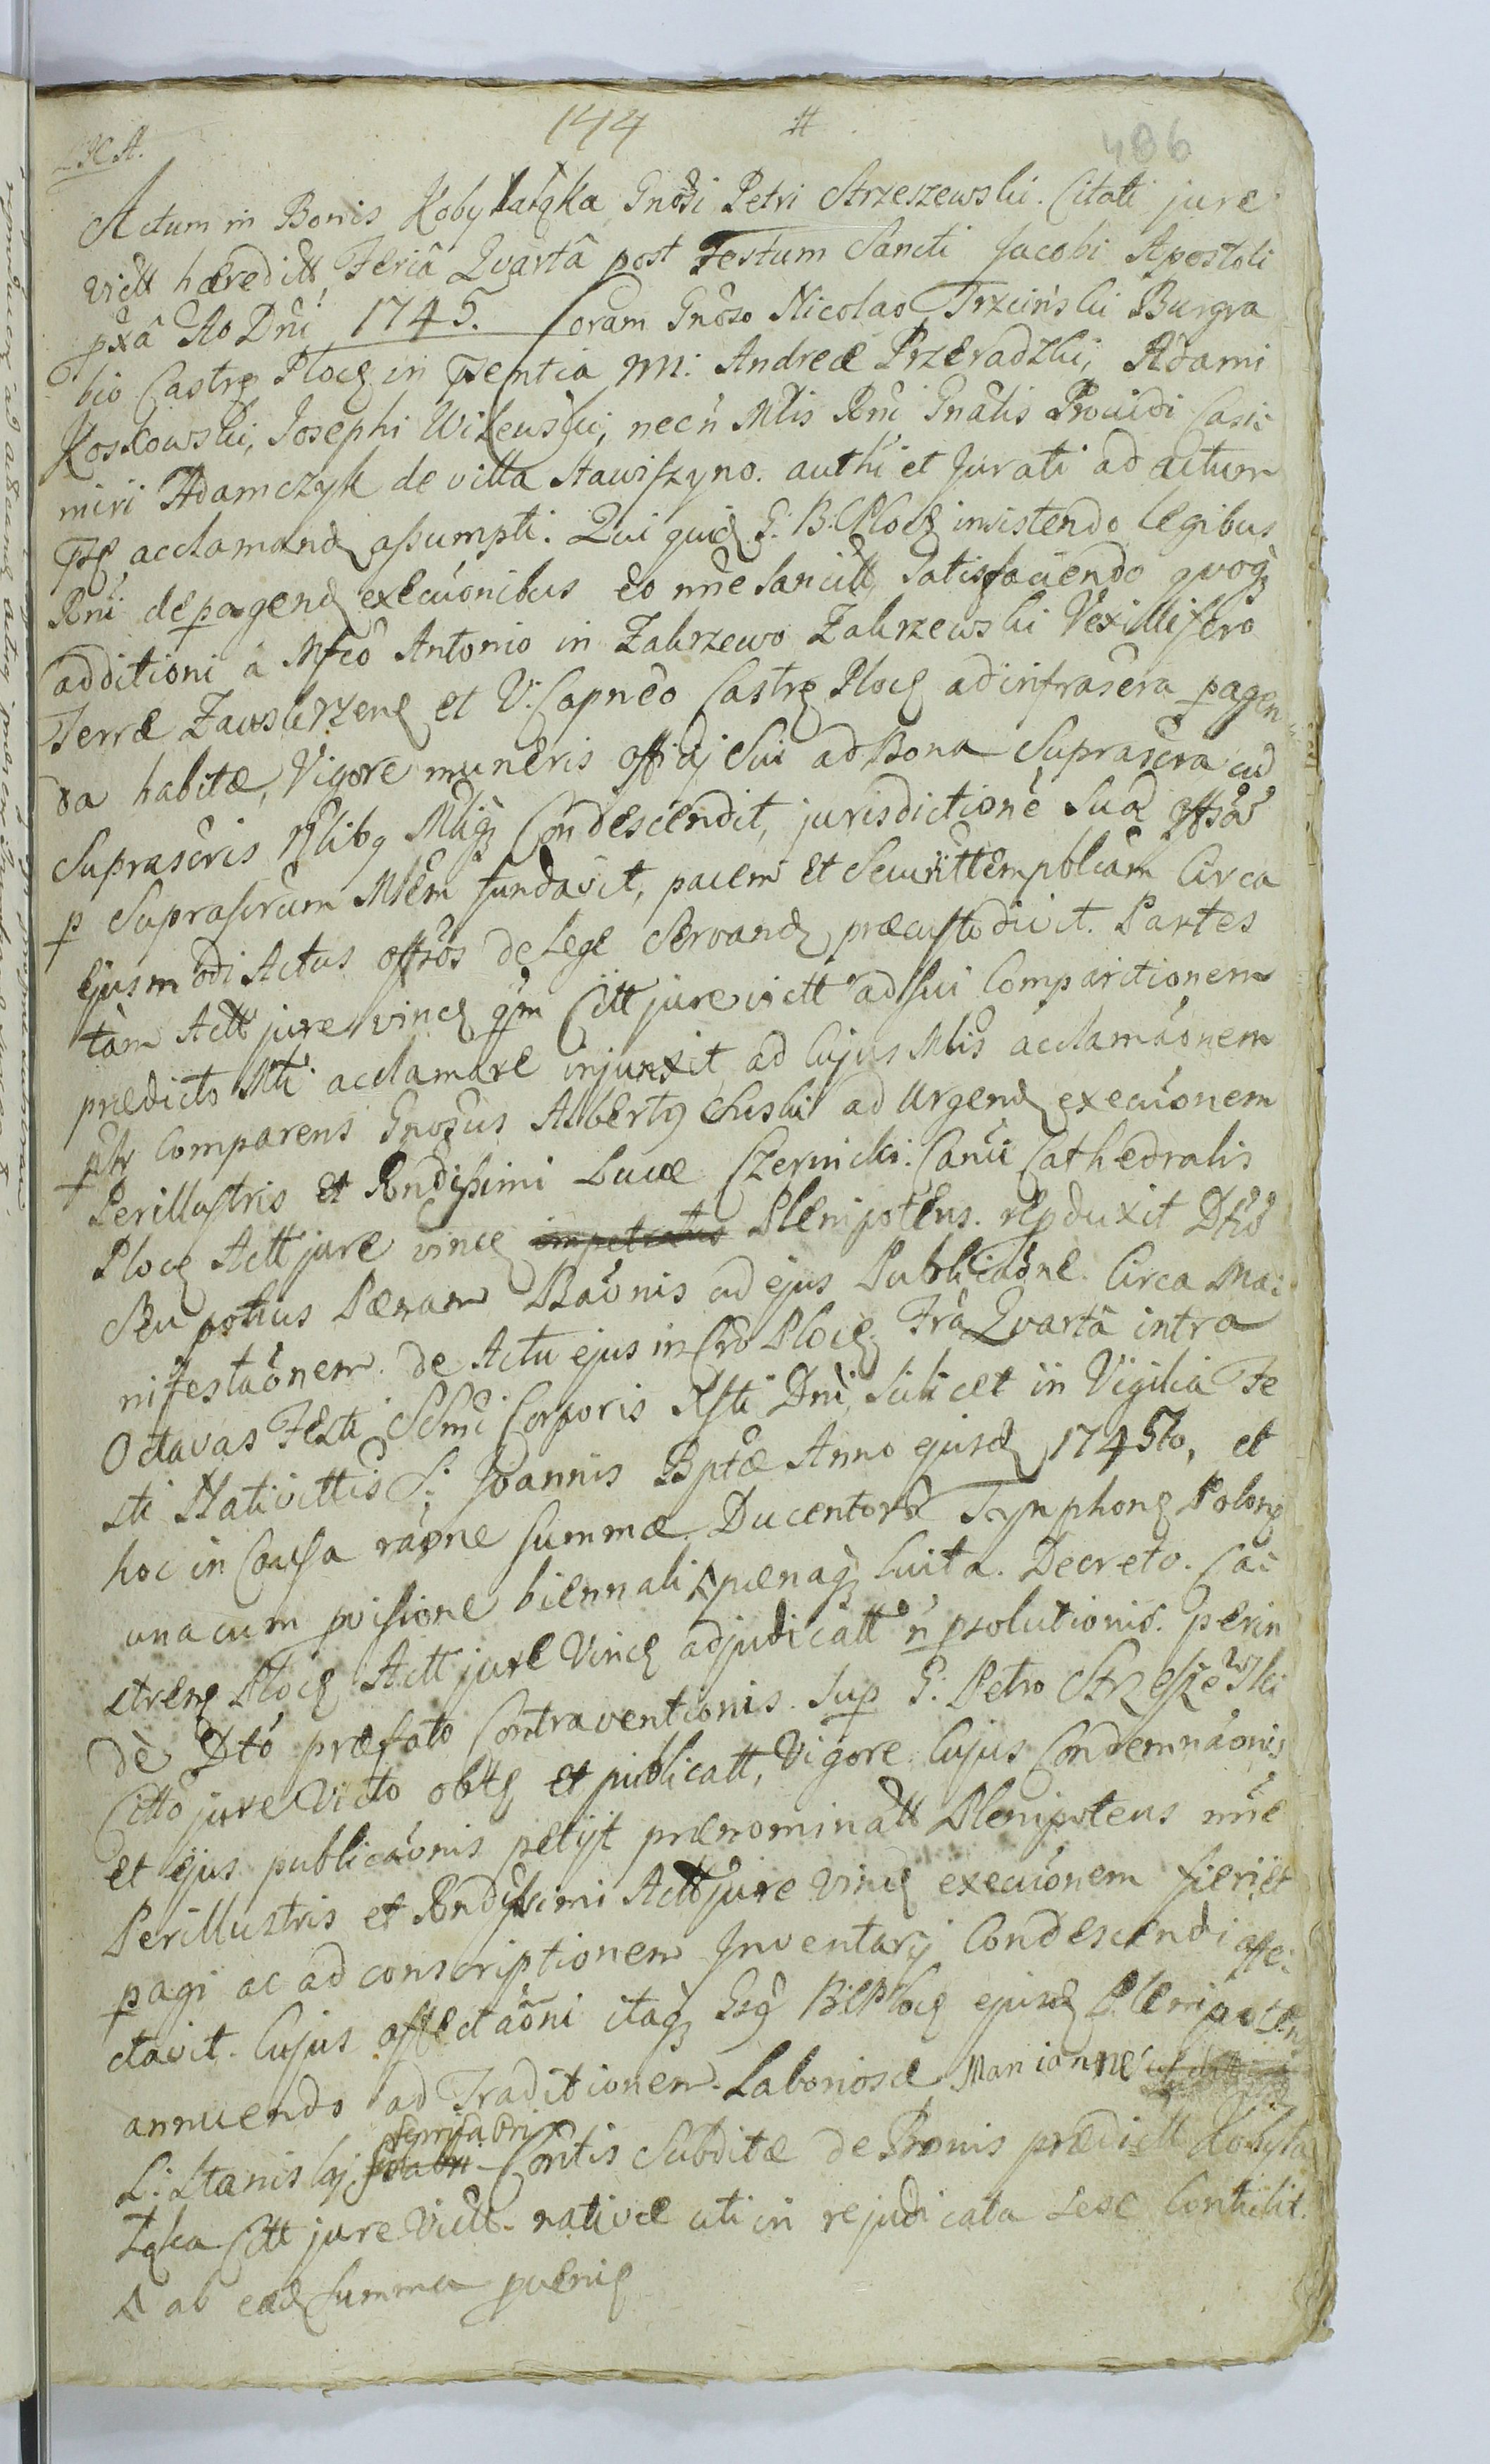 144 #
486
Actum in Bonis Kobylaśka Gnosi Petri Strzeszewski. Citati jure
victt hæreditt, Feriâ Qvartâ post Festum Sancti Jacobi Apostoli
pxâ Ao Dni 1745. Coram Gnoso Nicolao Trzcinski Burgra
bio Castrē Plocē in psentia M: Andreæ Przeradzki, Adami
Koskowski, Josephi Wilewski, necn Mlis Rni Gnalis Providi Casi:
miri Adamczyk de villa Stawiszyno. authi et Jurati ad actum
acclamand assumpti. Qui quid G: B: Plocē insistendo legibus
Rni de pagend execuōnibus eo nne sancitt, satisfaciendo qvoq
additioni a Mfco Antonio in Zakrzewo Zakrzewski Vexillifero
Terræ Zawskrzenē et V: Capneo Castrē Plocē ad infrascra pagen
da habitæ, Vigore muneris offcij sui ad Bona Suprascra cud
Suprascris Nlibq Mliq Condescendit, jurisdictionē Suā offsā
p Suprascrum Mlem fundavit, pacem et Securittem pblicam Circa
ejusmodi Actus offsos de Lege Servand præcustodivit. Partes
tàm Actt jure vincē qm Citt jure victt ad sui Comparitionem
prædicto Mli acclamare injunxit, ad Cujus Mlis acclamāonem
pltr Comparens Gnosus Albertq Suski ad Urgend execuōnem
Perillustris et Rndissimi Lucæ Czernicki. Canci Cathedralis
Plocē Actt jure vincē Plenipotens. repduxit Dtō
seu potius Pænam Bāonis ad ejus Publicāone. Circa Ma:
nifestāonem de Actu ejus in Cro Plocē. Frâ Qvartâ intra
Octavas Festi Sctmi Corporis Xsti Dni, scilicet in Vigilia Fe
sti Nativittis S: Joannis Bptæ Anno ejusd 1745to, et
hoc in Causa rāone Summæ Ducentorū Tynphonē Polonē
una cum pvisione biennali Δ pænaq luita. Decreto. Ca:
strenē Plocē Actt jure Vincē adjudicatt n psolutionis. perin
dè Dtō præfato Contraventionis. Sup G: Petro Strzeszewski
Citto jure Victo obtē et publicatt, Vigore Cujus Condemnāonis
et ejus publicāonis petijt prænominatt Plenipotens nne
Perillustris et Rndissimi Actt jure vincē execuōnem fieri et
pagi ac ad conscriptionem Inventarij Condescendi affe:
ctavit. Cujus affectāoni itaq Gsq B: Plocē ejusd Plenipoten
annuendo ad Traditionem Laboriosæ Mariannæ
L: Stanislaj ferrifabri Cortis Subditæ de Bonis prædictt Kobyla
Citt jure Victt. nativæ uti in rejudicata sese Contulit.
Δ ab eâd Summa pvenie